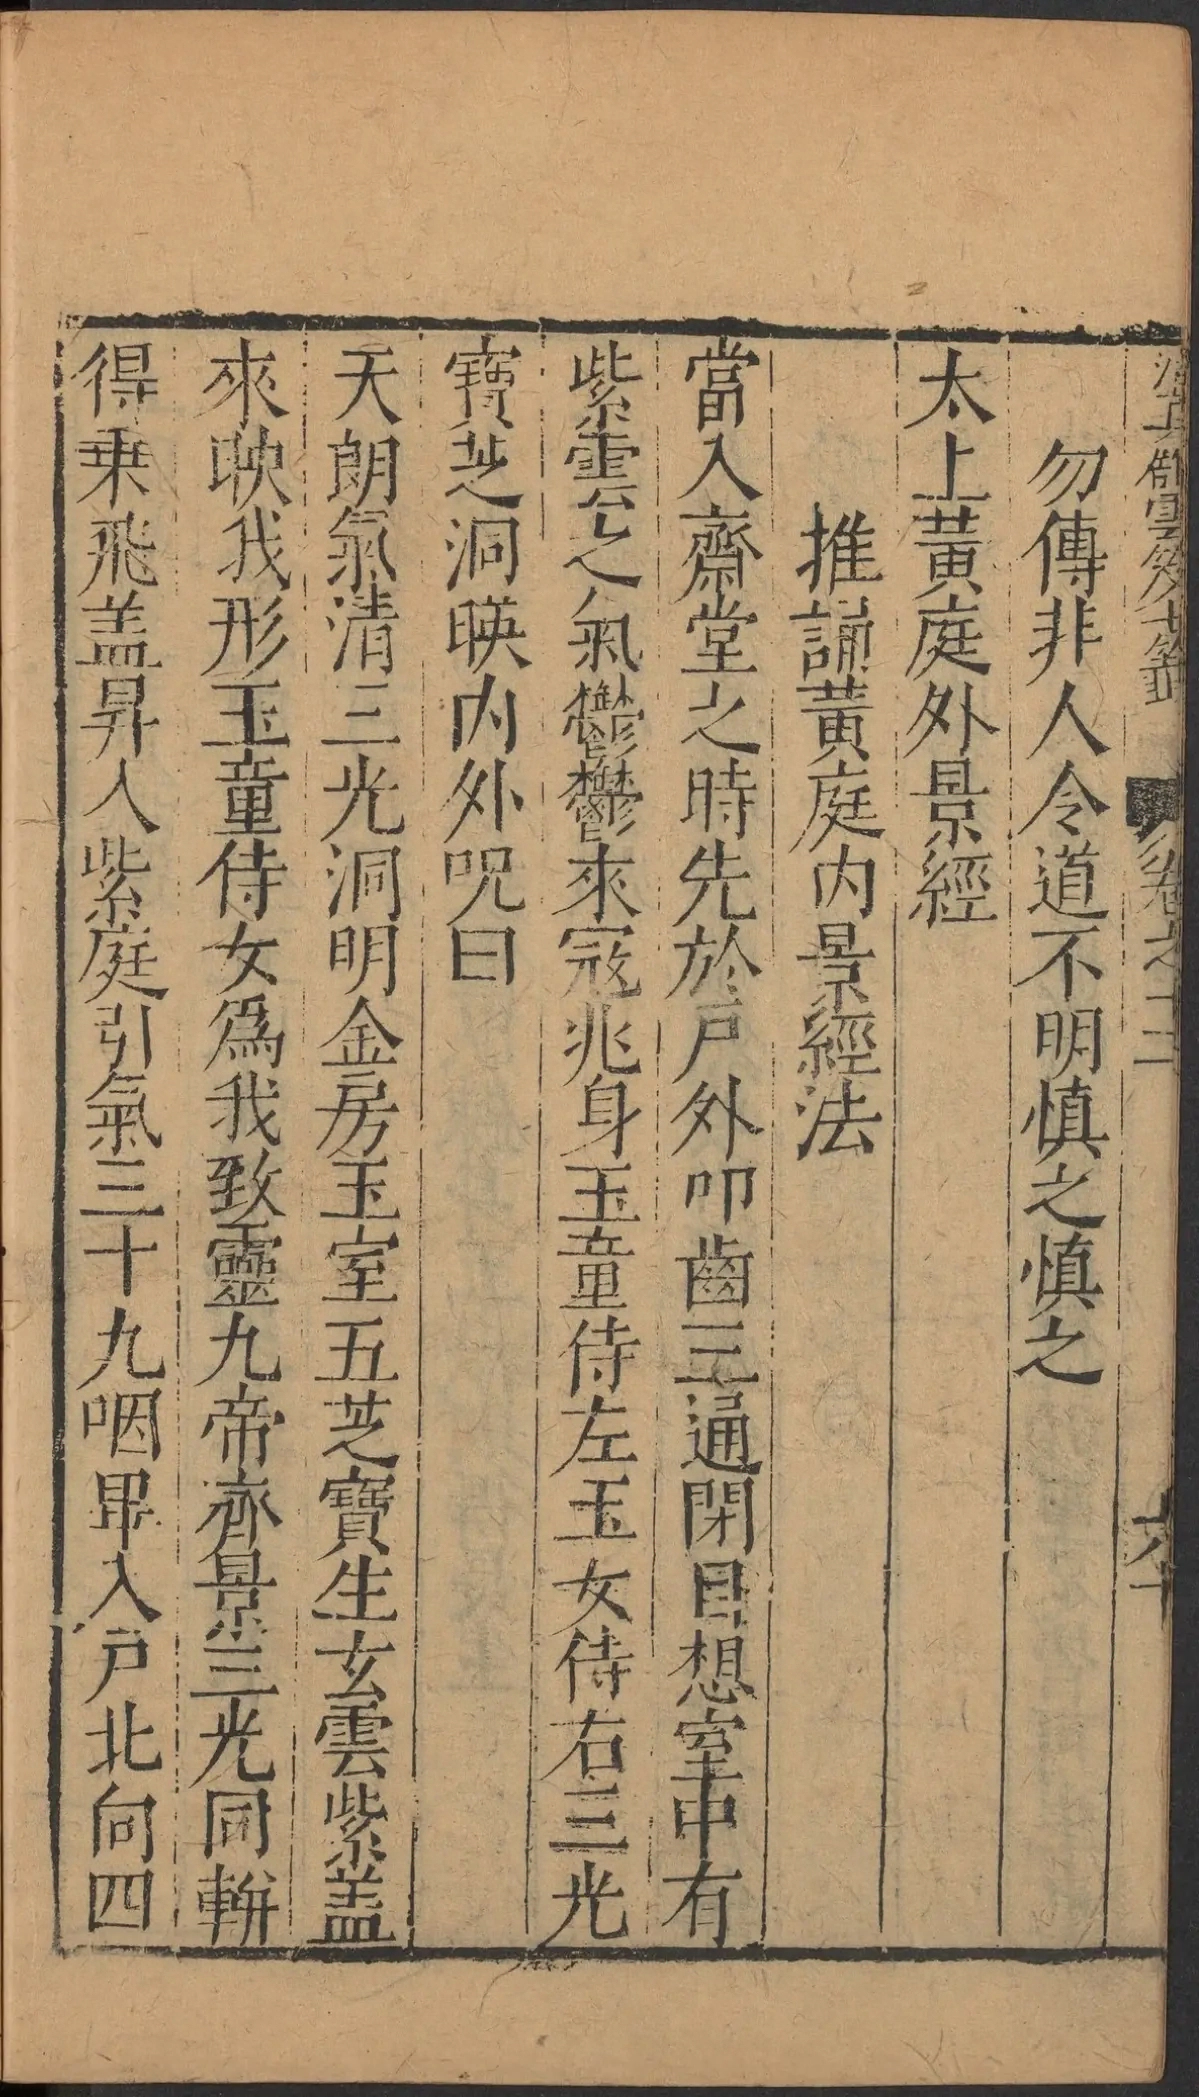 卷之十二
勿傳非人令道不明慎之慎之
太上黃庭外景經
推誦黃庭内景經法
當入齋堂之時先於戶外叩齒三通閉目想室中有
紫雲之氣鬱鬱來冠兆身玉童侍左玉女侍右三光
寶芝洞暎内外呪曰
天朗氣清三光洞明金房玉室五芝寶生玄雲紫盖
來映我形玉童侍女爲我致靈九帝齊景三光同軿
得乗飛盖昇入紫庭引氣三十九咽畢入戶北向四